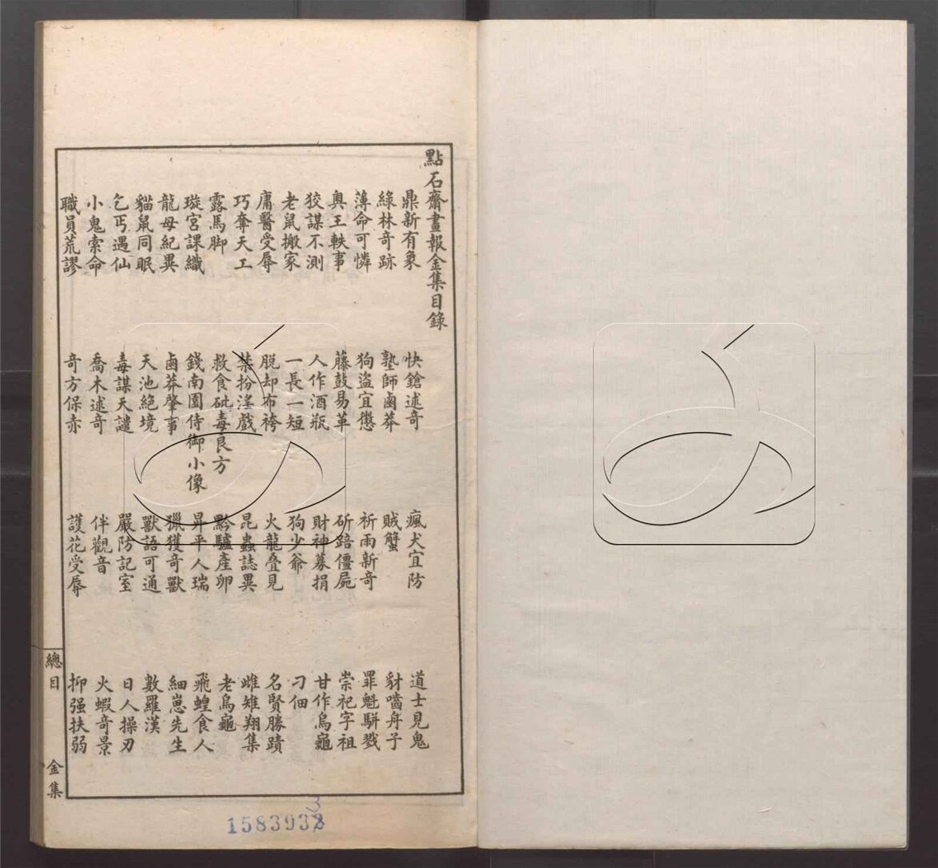 點石齋畫報金集目錄
鼎新有象 快鎗述奇 瘋犬宜防 道士見鬼
綠林奇跡 塾師鹵莽 賊蟹 豺噬舟子
薄命可憐 狗盜宜懲 祈雨新奇 罪魁駢戮
奧王軼事 藤鼓易革 斫錇僵屍 崇祀字祖
狡謀不測 人作酒瓶 財神募捐 甘作烏龜
老鼠搬家 一長一短 狗少爺 刁佃
庸醫受辱 脱却布袴 火龍叠見 名賢勝蹟
巧奪天工 禁扮淫戲 昆蟲誌異 雌雉翔集
露馬脚 救食砒毒良方 黔驢產卵 老烏龜
璇宮課織 錢南園侍御小像 昇平人瑞 飛蝗食人
龍母紀異 鹵莽肇事 獵獲奇獸 細崽先生
貓鼠同眠 天池絶境 獸語可通 數羅漢
乞丐遇仙 毒謀天譴 嚴防記室 日人操刃
小鬼索命 喬木述奇 伴觀音 火蝦奇景
職員荒謬 奇方保赤 護花受辱 抑强扶弱
總目 金集